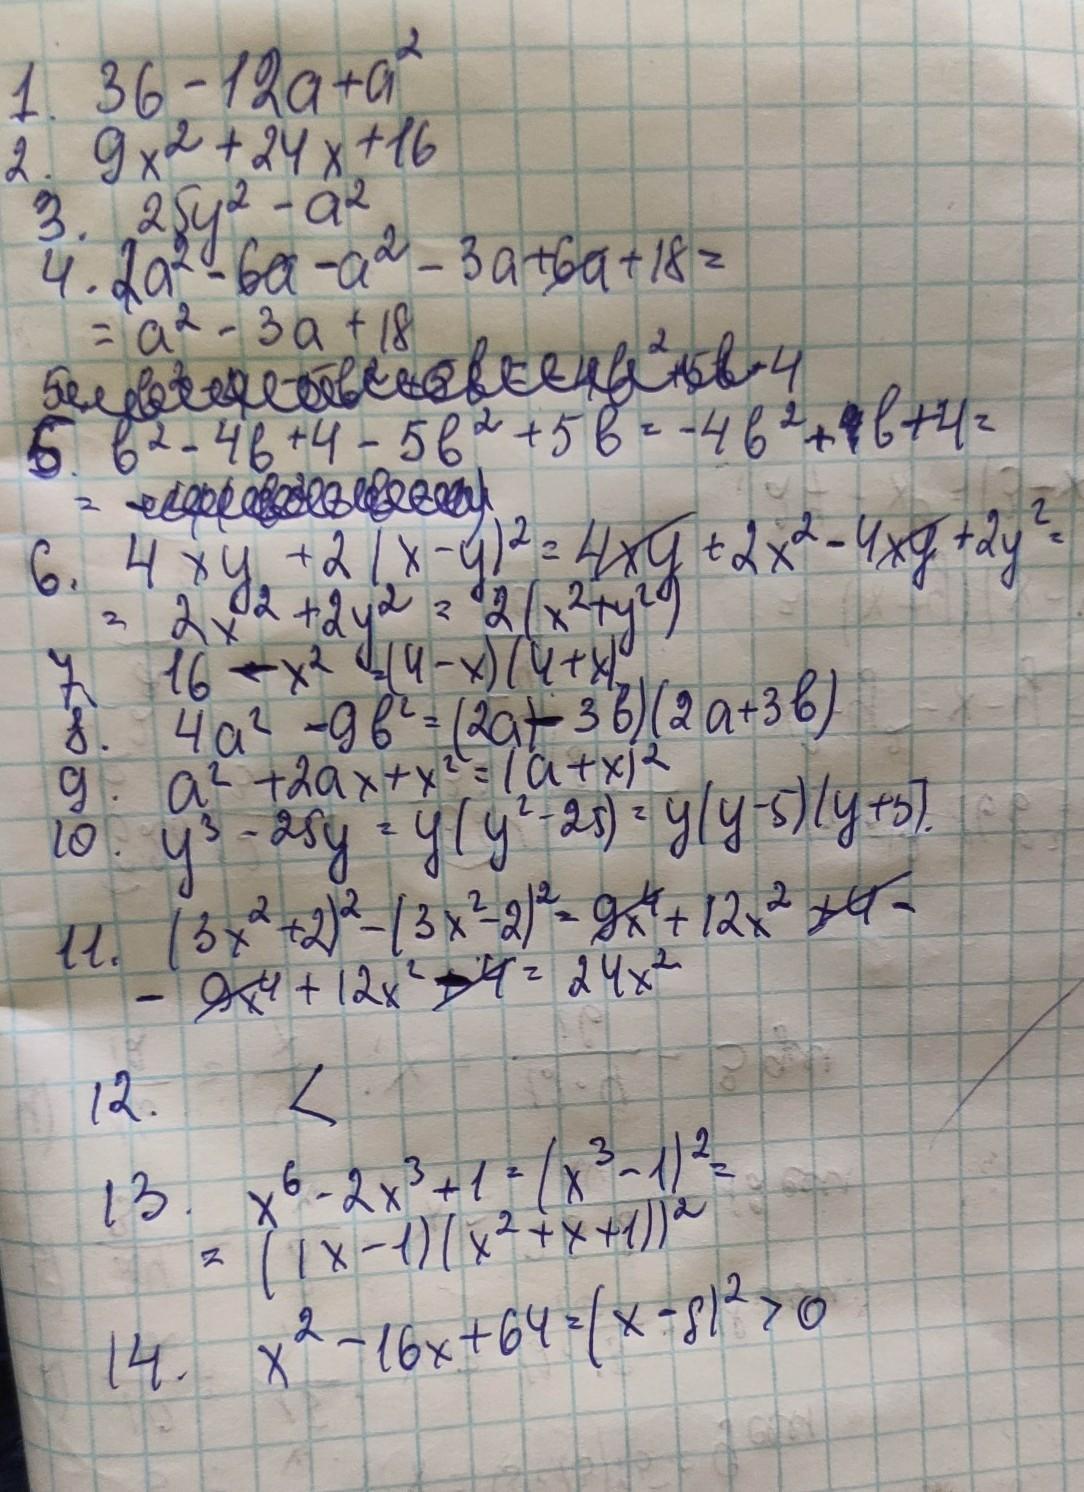 1. 36 - 12a + a²
2. 9x² + 24x + 16
3. 25y² - a²
4. 2a² - 6a - a² - 3a + 6a + 18 =
= a² - 3a + 18
5. в² - 4в + 4 - 5в² + 5в = -4в² + 1в + 4 =
=
6. 4xy + 2(x-y)² = 4xy + 2x² - 4xy + 2y² =
= 2x² + 2y² = 2(x² + y²)
7. 16 - x² = (4-x)(4+x)
8. 4a² - 9в² = (2a - 3в)(2a + 3в)
9. a² + 2ax + x² = (a + x)²
10. y³ - 25y = y(y² - 25) = y(y-5)(y+5).
11. (3x² + 2)² - (3x² - 2)² = 9x⁴ + 12x² + 4 -
- 9x⁴ + 12x² - 4 = 24x²
12. <
13. x⁶ - 2x³ + 1 = (x³ - 1)² =
= ((x-1)(x² + x + 1))²
14. x² - 16x + 64 = (x - 8)² > 0